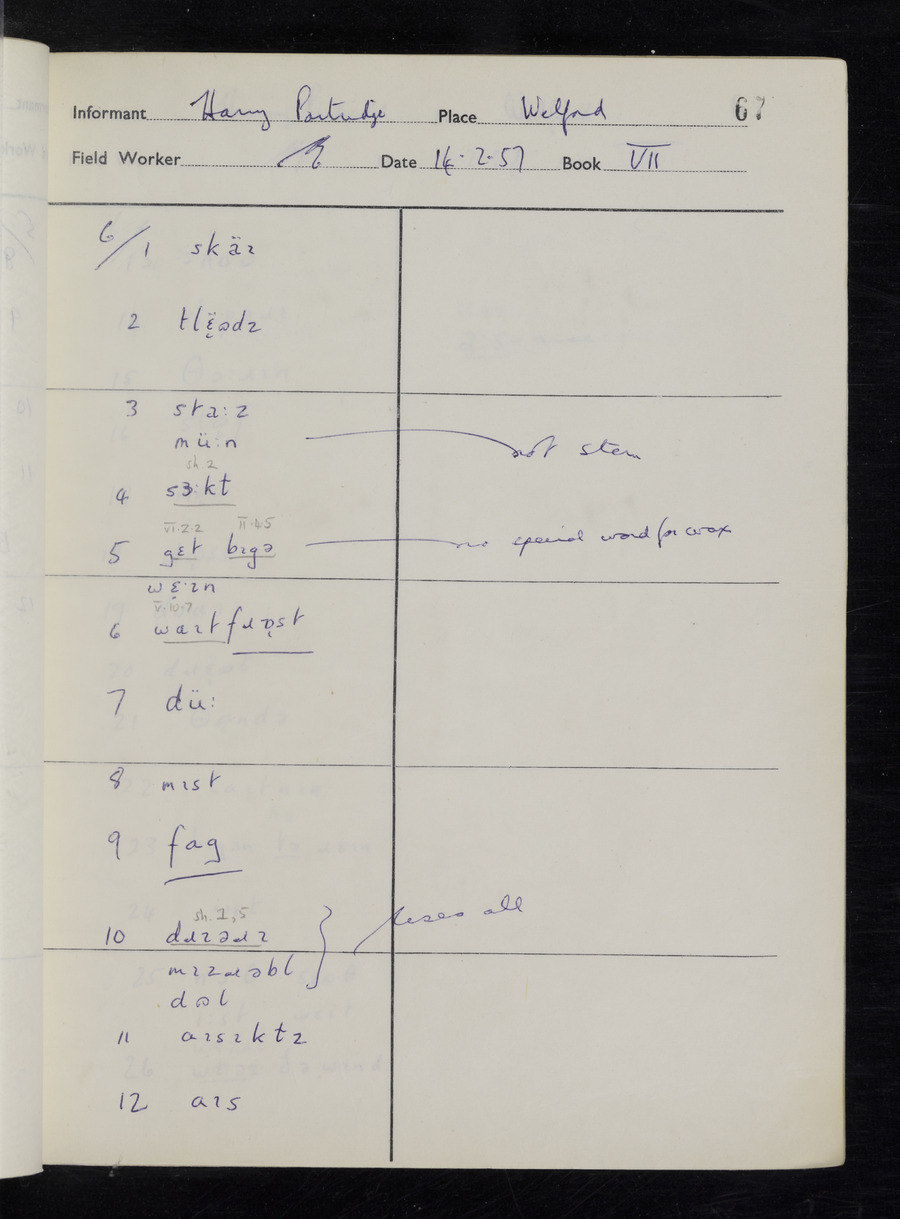 Informant Harry Partridge Place Welford 67
Field Worker Date 14·2·57 Book VII
6/1 skäɪ
2 tlɛ̈ədz
3 sta:z
mü:n not stem
sh.2
4 sɜ:kt
VI·2·2 II·4·5
5 gɛt bɪgə no special word for wax
wɛ:ɪn
V·10·7
6 waɪt fɹɒst
7 dü:
8 mɪst
9 fag
sh. 1, 5
10 uses all
11 aɪsɪktz
12 aɪs